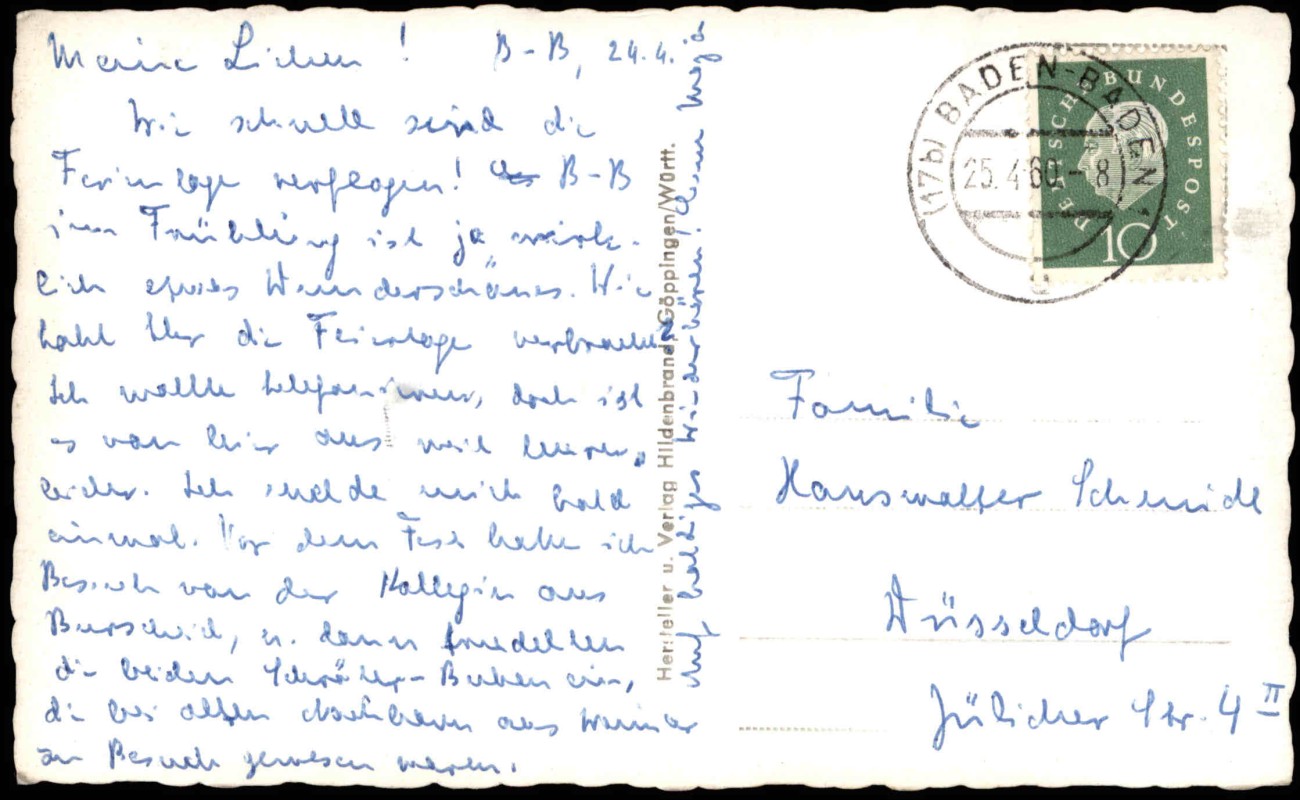 Meine Lieben! B-B, 24.4.
Wie schnell sind die
Ferientage verflogen! B-B
im Frühling ist ja wirk-
lich etwas Wunderschönes. Wie
habt Ihr die Feiertage verbracht?
Ich wollte telefonieren, doch ist
es von hier aus
leider. Ich melde mich bald
einmal. Vor dem Fest hatte ich
Besuch von der Kollegin aus
Burscheid, u. dann trudelten
die beiden Schröter-Buben ein,
die bei alten Nachbarn aus Weimar
zu Besuch gewesen waren.
Auf baldiges Wiederhören!
Hersteller u. Verlag Hildenbrand, Göppingen/Württ.
(17b) BADEN-BADEN 1
25.4.60.-8
DEUTSCHE BUNDESPOST
10
Familie
Hanswalter Schmidt
Düsseldorf
Jülicher Str. 4 II